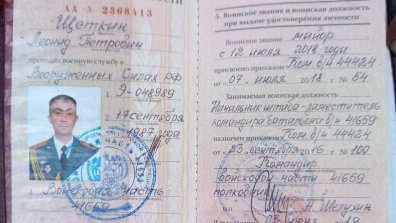 АА № 2368413
Щеткин
Леонид Петрович
проходит военную службу в
Вооруженных Силах РФ
Э-048989
17 сентября
1987 года
Войсковая часть
41659
3. Воинское звание и воинская должность
при выдаче удостоверения личности
Воинское звание майор
с 12 июля 2018 года
присвоено приказом Ком. в/ч 44424
от 07. июля 2018 г. № 54
Занимаемая воинская должность
Начальник штаба-заместитель
командира батальона в/ч 41659
назначен приказом Ком в/ч 44424
от 23. сентября 2016 № 100
Командир
войсковой части 41659
полковник